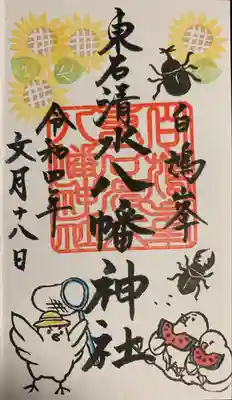 白鳩峯
東石清水八幡神社
令和四年
文月十八日